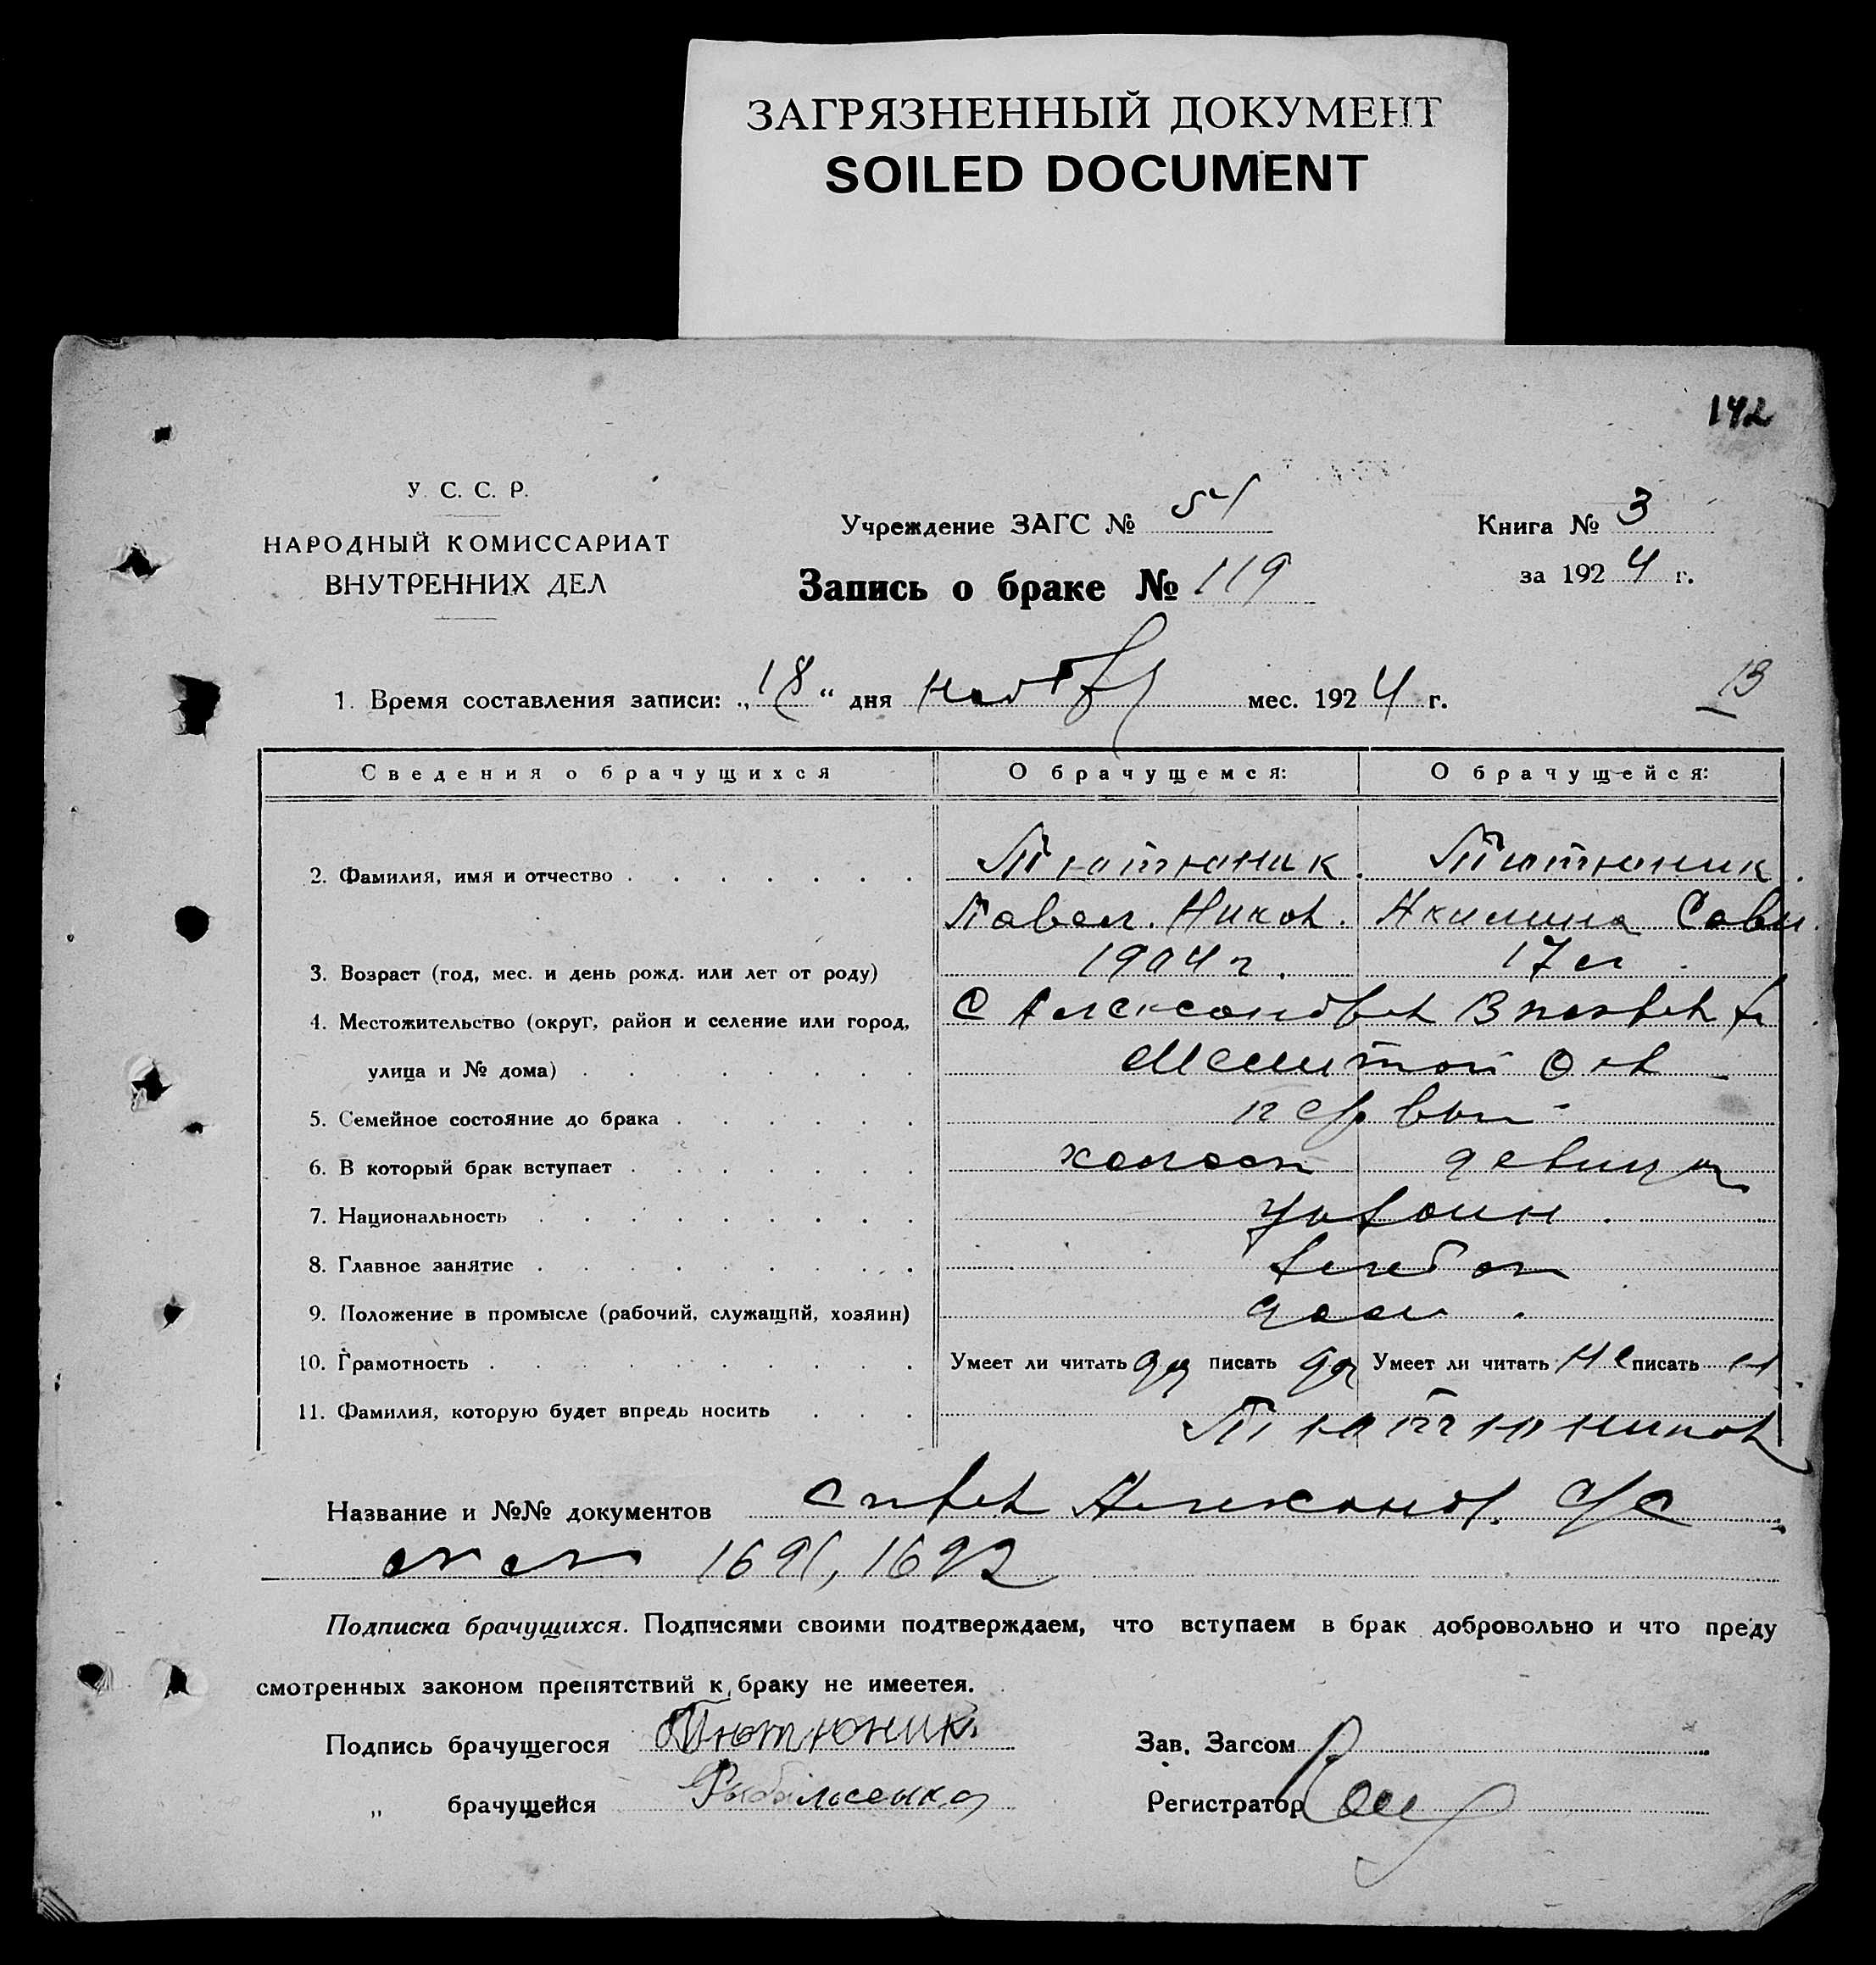 ЗАГРЯЗНЕННЫЙ ДОКУМЕНТ
SOILED DOCUMENT
142
У. С. С. Р.
НАРОДНЫЙ КОМИССАРИАТ
ВНУТРЕННИХ ДЕЛ
Учреждение ЗАГС № 54
Книга № 3
Запись о браке № 119
за 1924 г.
1. Время составления записи: „18“ дня ноября мес. 1924 г.
13
Сведения о брачущихся О брачущемся: О брачущейся:
2. Фамилия, имя и отчество Тютюник. Тютюник.
Павел. Ников. Акилина Сави.
3. Возраст (год, мес. и день рожд. или лет от роду) 1904 г. 17 л
4. Местожительство (округ, район и селение или город, С Александров
улица и № дома)
5. Семейное состояние до брака первый
6. В который брак вступает холост девица
7. Национальность украин.
8. Главное занятие хлебоп
9. Положение в промысле (рабочий, служащий, хозяин)
10. Грамотность Умеет ли читать да писать да Умеет ли читать не писать
11. Фамилия, которую будет впредь носить Тютюников
Название и №№ документов Александ. с/с
1691, 1692
Подписка брачущихся. Подписями своими подтверждаем, что вступаем в брак добровольно и что преду
смотренных законом препятствий к браку не имеетея.
Подпись брачущегося Тютюник
Зав. Загсом
„ брачущейся Рыбальсенка
Регистратор